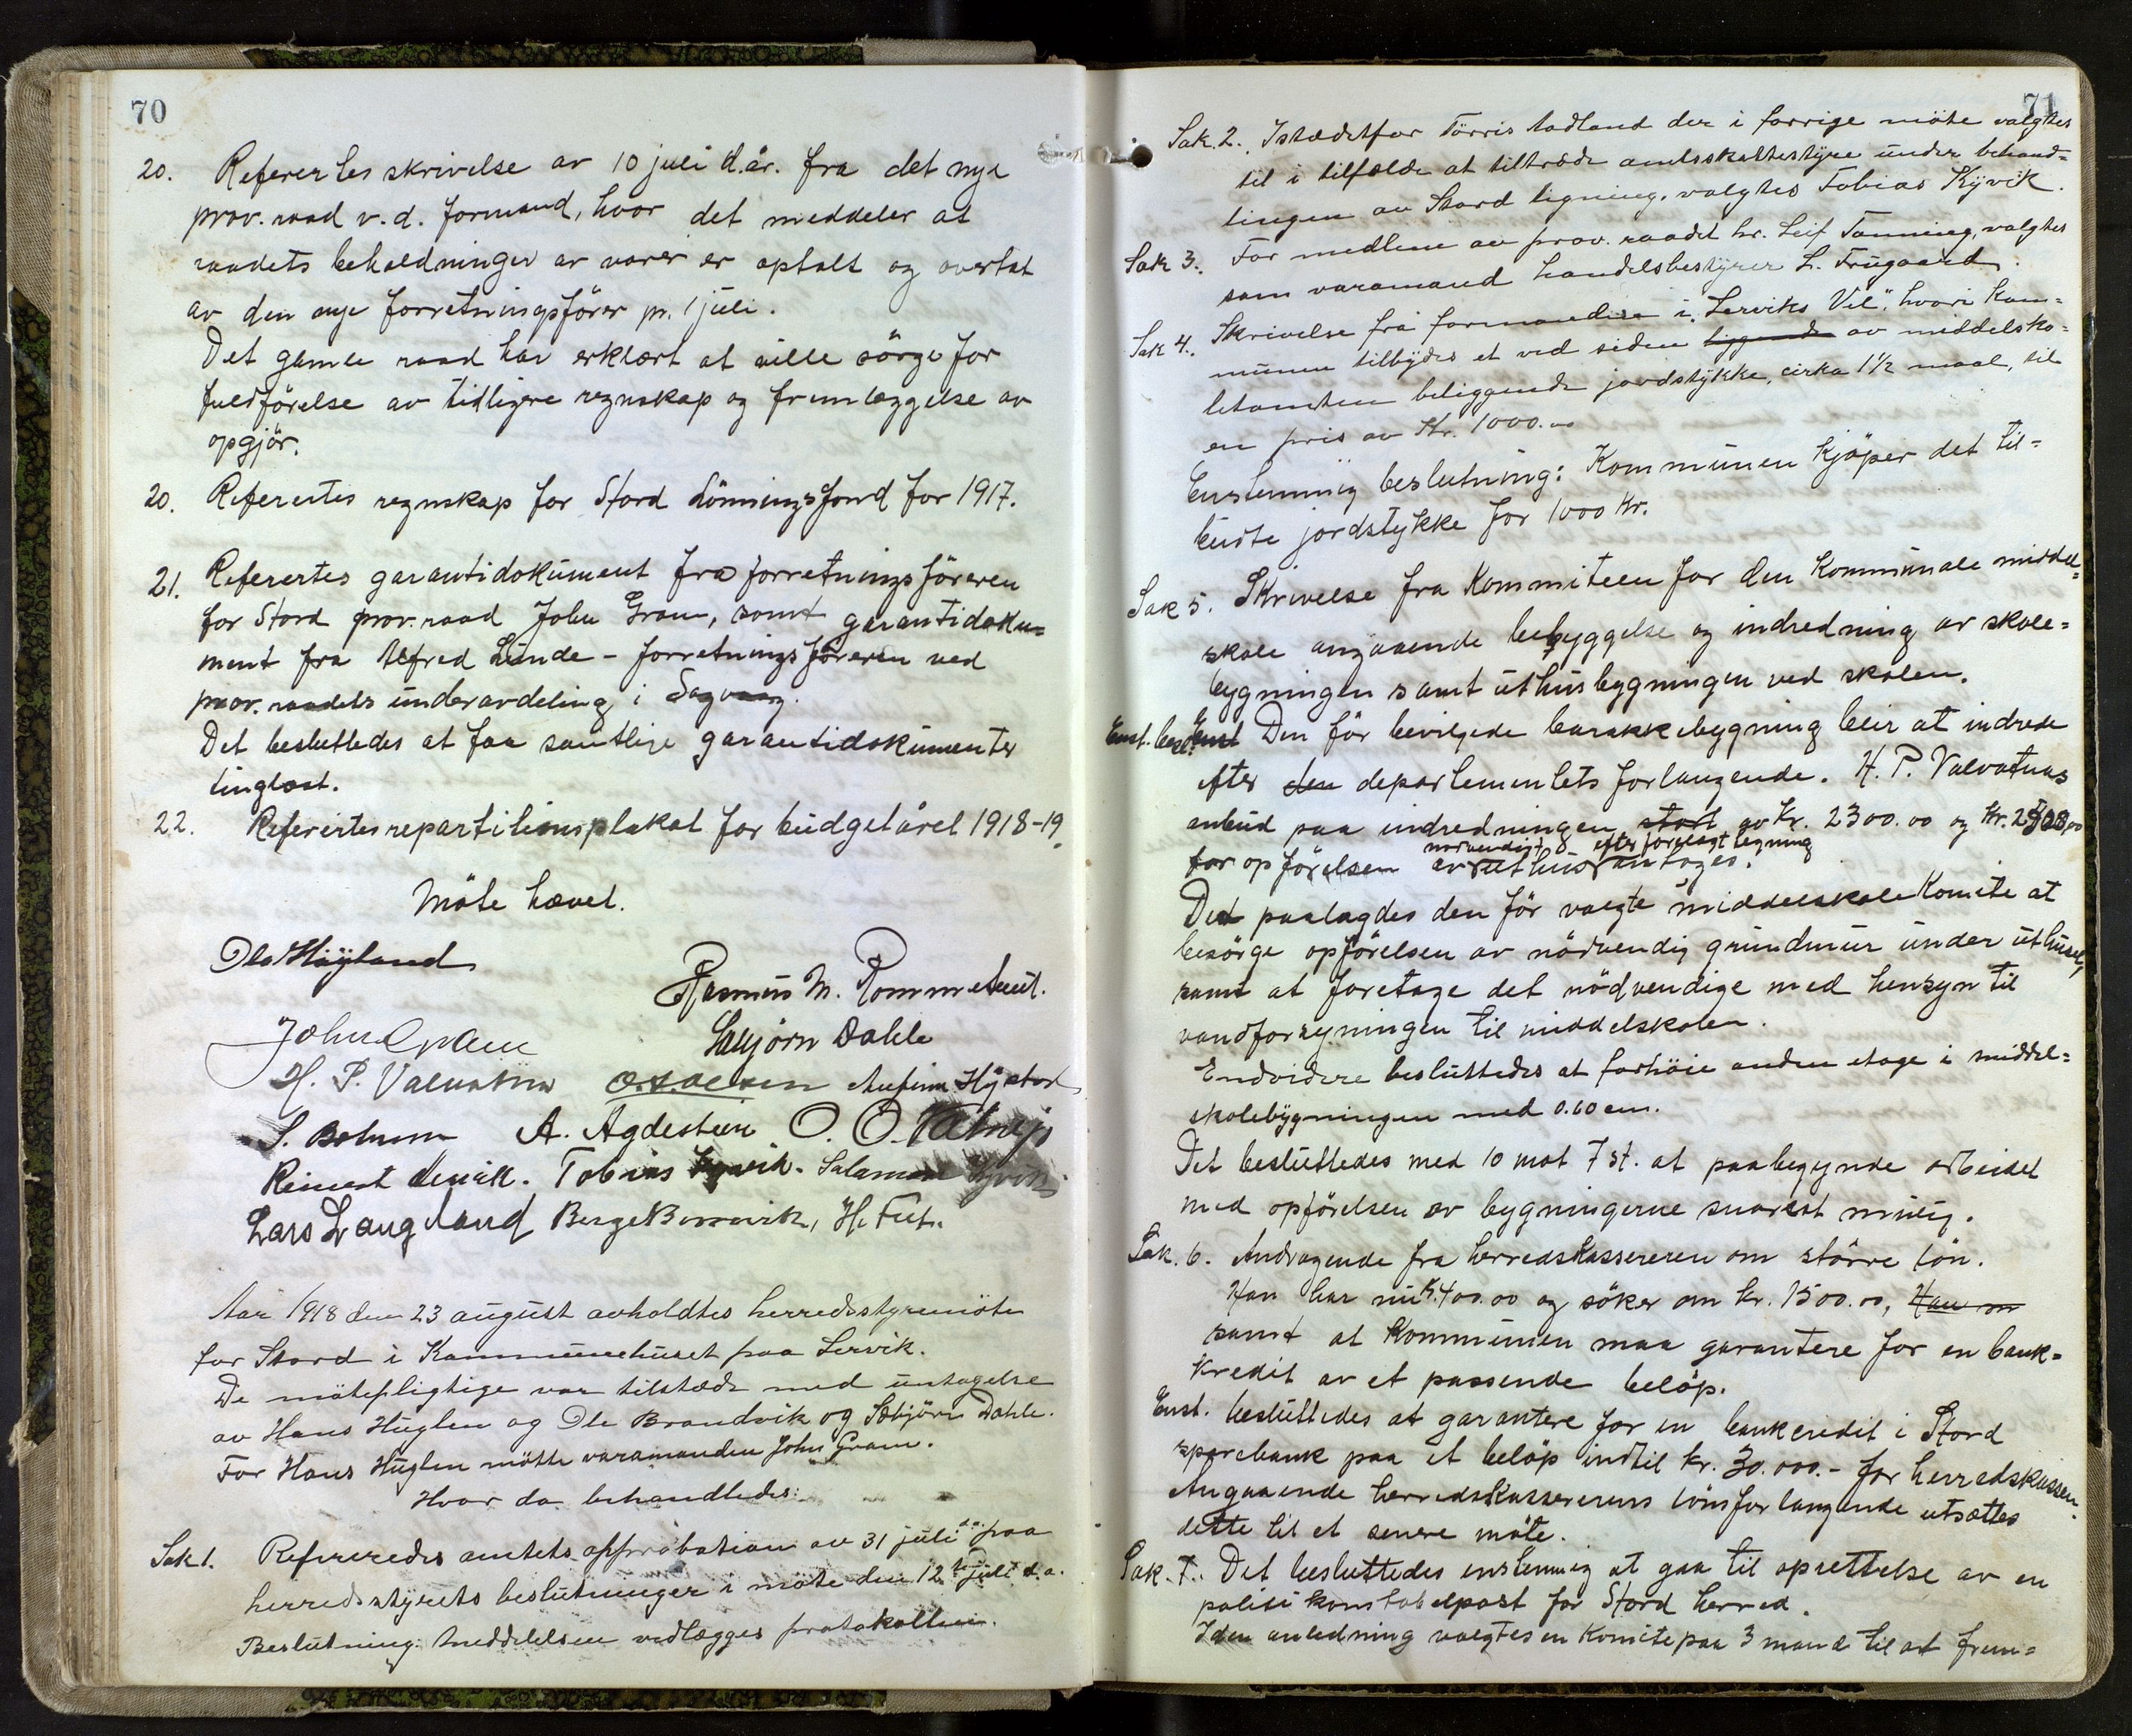 70
20. Refererles skrivelse av 10 juli d.år. fra det nye
prov. raad v. d. formand, hvor det meddeler at
raadets beholdninger av varer er optalt og overtat
av den nye forretningsförer pr. 1 juli.
Det gamle raad har erklært at ville sörge for
fuldförelse av tidligere regnskap og fremlæggelse av
opgjör.
20. Referertes regnskap for Stord Lönningsfond for 1917.
21. Referertes garantidokument fra forretningsföreren
for Stord prov. raad John Gram, samt garantidoku=
ment fra Alfred Lunde - forretningsföreren ved
prov. raadets underavdeling i Sagvaag.
Det besluttedes at faa samtlige garantidokumenter
tinglæst.
22. Referertes repartitionsplakat for budgetåret 1918-19.
Möte hævet.
Ola Höyland
Rasmus M. Rommetveit.
John Gram
Sæbjörn Dahle
H. P. Valvatna
Aufinn Hystad
A. Agdestein O. O.
Tobias Kyvik. Salamon Kyvik
Lars Langeland
Aar 1918 den 23 august avholdtes herredsstyremöte
for Stord i Kommunehuset paa Lervik.
De mötepligtige var tilstæde med untagelse
av Hans Huglen og Ole Brandvik og Sæbjörn Dahle.
For Hans Huglen mötte varamanden John Gram.
Hvor da behandledes:
Sak 1. Refereredes amtets approbation av 31 juli d.a. paa
herredsstyrets beslutninger i möte den 12te juli d.a.
Beslutning: Meddelelsen vedlægges protokollen.
71
Sak. 2. Istædetfor Törris Aadland der i forrige möte valgtes
til i tilfælde at tiltræde amtsskattestyre under behand=
lingen av Stord ligning, valgtes Tobias Kyvik.
Sak 3. For medlem av prov. raadet hr. Leif Tanning, valgtes
som varamand handelsbestyrer L. Frugaard.
Sak 4. Skrivelse frå formanden i "Lerviks Vel", hvori kom=
munen tilbydes et ved siden liggende av middelsko=
letomten beliggende jordstykke, cirka 1 1/2 maal, til
en pris av Kr. 1000.00
Enstemmig beslutning: Kommunen kjöper det til=
budte jordstykke for 1000 kr.
Sak 5. Skrivelse fra Kommiteen for den Kommunale middel=
skole angaaende bebyggelse og indredning av skole=
bygningen samt uthusbygningen ved skolen.
Enst. besl. Enst Den för bevilgede barakkebygning blir at indrede
efter den departementets forlangende. H. P. Valvatnas
anbud paa indredningen stort av kr. 2300.00 og kr.
for opförelsen av nödvendigt uthus efter forelagt tegning antages.
Det paalagdes den för valgte middelskolekomite at
besörge opförelsen av nödvendig grundmur under uthuset,
samt at foretage det nödvendige med hensyn til
vandforsyningen til middelskolen.
Endvidere besluttedes at forhöie anden etage i middel=
skolebygningen med 0.60 cm.
Det besluttedes med 10 mot 7 st. at paabegynde arbeidet
med opförelsen av bygningerne snarest mulig.
Sak. 6. Andragende fra herredskassereren om större lön.
Han har nu kr. 400.00 og söker om kr. 1500.00, Han
samt at Kommunen maa garantere for en bank=
kredit av et passende belöp.
Enst. besluttedes at garantere for en bankcredit i Stord
sparebank paa et belöp indtil kr. 30.000.- for herredskassen.
Angaaende herredskassererens lönsforlangende utsættes
dette til et senere möte.
Sak. 7. Det besluttedes enstemmig at gaa til oprettelse av en
politikonstabelpost for Stord herred.
I den anledning valgtes en Komite paa 3 mand til at frem=